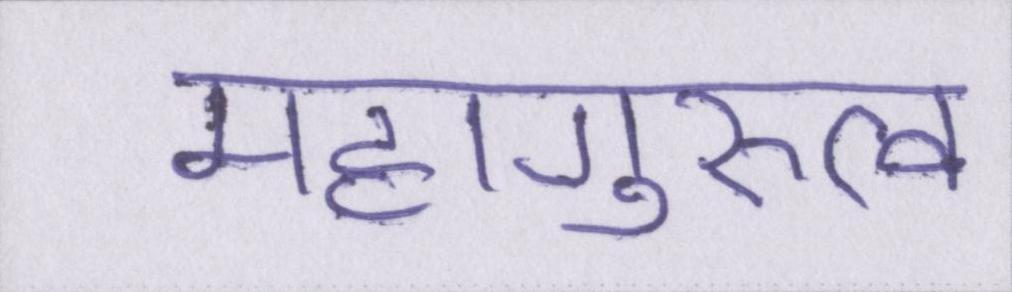 महागुरुत्व